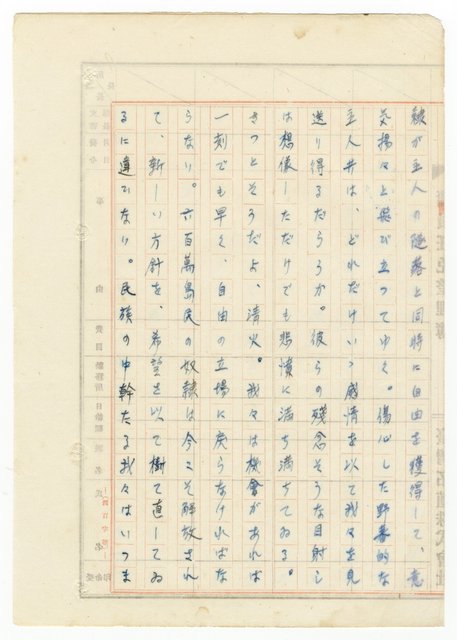 隷が主人の墜落と同時に自由を獲得して、意
気揚々と飛び立つてゆく。傷心した野蕃的な
主人共は、どれだけいゝ感情を以て我々を見
送り得るだらうか。彼らの残念そうな目射し
は想像しただけでも悲憤に満ち満ちてゐる。
きつとそうだよ、清火。我々は機會があれば
一刻でも早く、自由の立場に戻らなければな
らない。六百萬島民の奴隷は今こそ解放され
て、新しい方針を、希望を以て樹て直してゐ
るに違ひない。民族の中幹たる我々はいつま